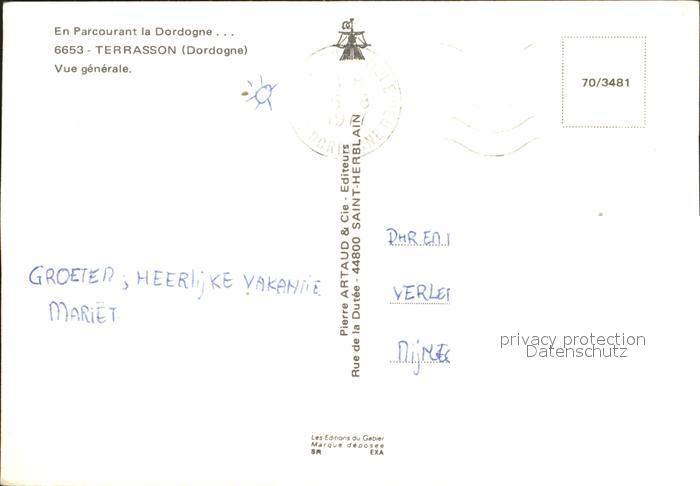 En Parcourant la Dordogne . . .
6653 - TERRASSON (Dordogne)
Vue générale.
70/3481
GROETEN, HEERLIJKE VAKANTIE
MARIËT
Pierre ARTAUD & Cie - Editeurs
Rue de la Dutée - 44800 SAINT-HERBLAIN
DHR EN
VERLE
NIJMEG
privacy protection
Datenschutz
Les Editions du Gabier
Marque déposée
SR EXA